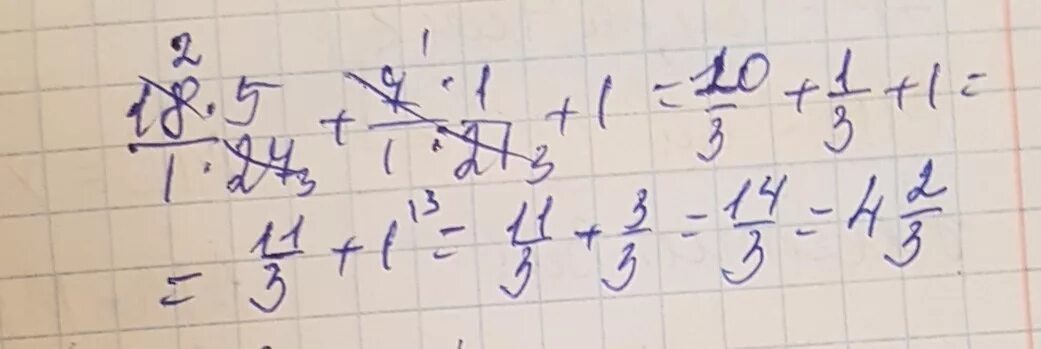 2 18·5/1·27 3 + 1 7·1/1·21 3 + 1 = 10/3 + 1/3 + 1 =
= 11/3 + 1 \3 = 11/3 + 3/3 = 14/3 = 4 2/3